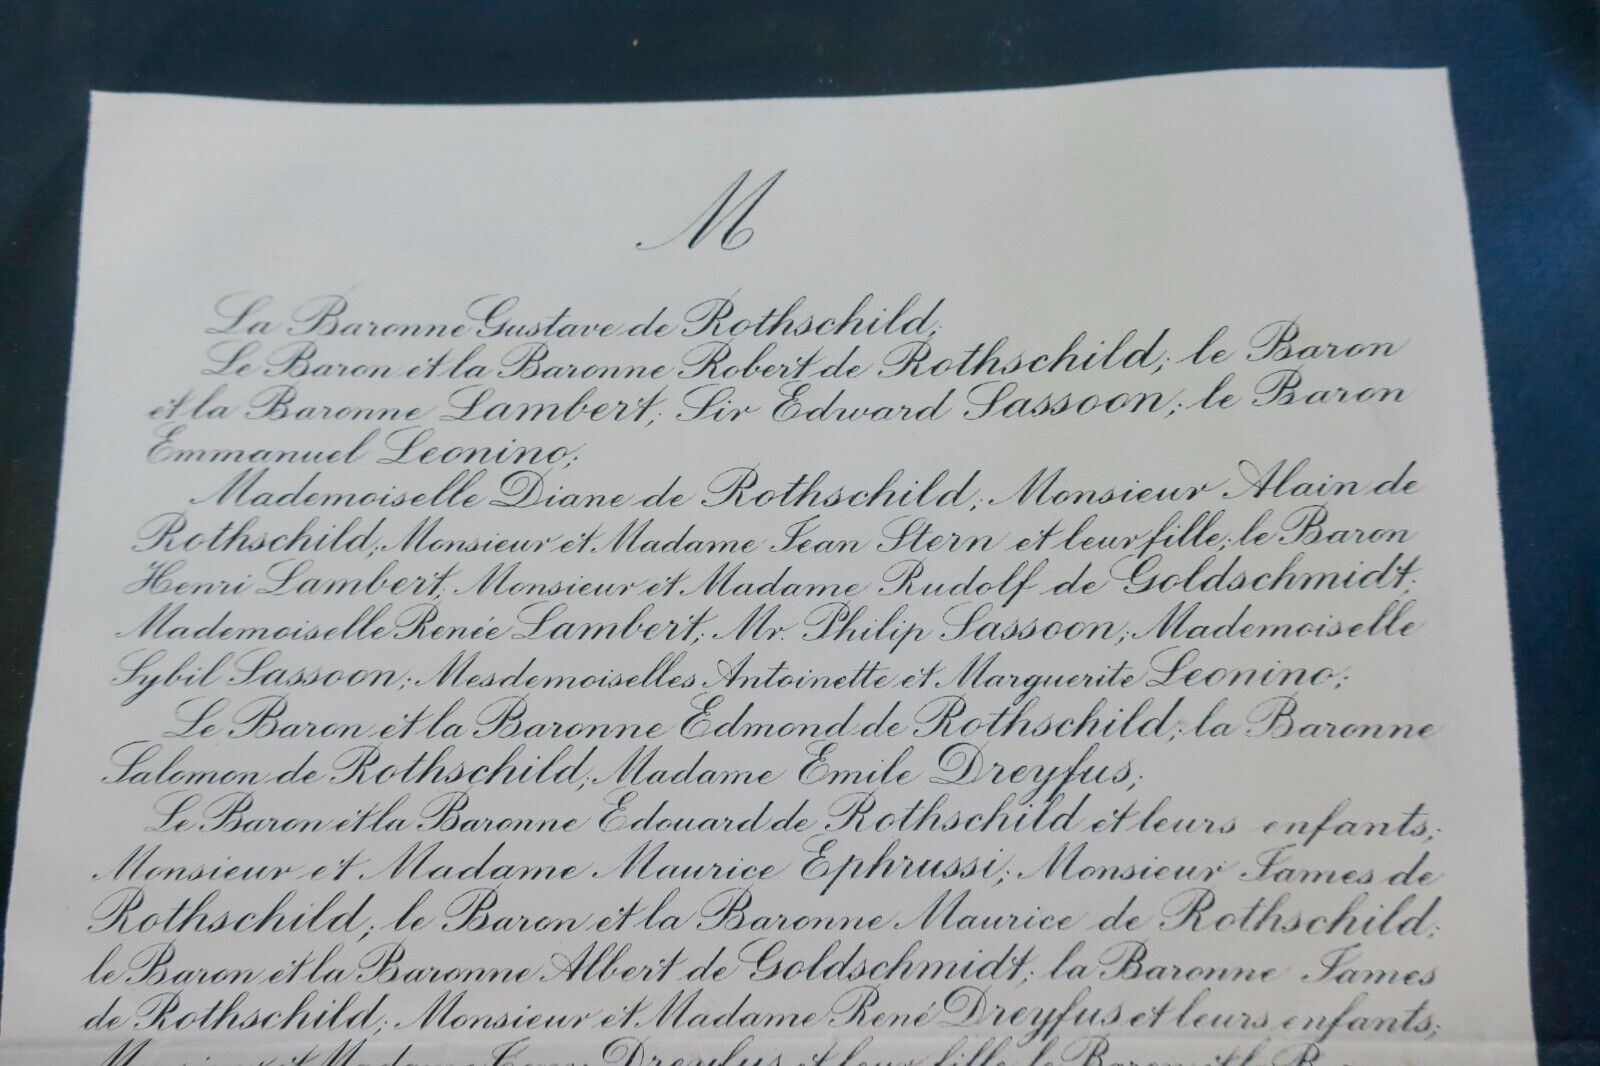 M
La Baronne Gustave de Rothschild;
Le Baron et la Baronne Robert de Rothschild; le Baron
et la Baronne Lambert; Sir Edward Sassoon; le Baron
Emmanuel Leonino;
Mademoiselle Diane de Rothschild; Monsieur Alain de
Rothschild; Monsieur et Madame Jean Stern et leur fille; le Baron
Henri Lambert; Monsieur et Madame Rudolf de Goldschmidt;
Mademoiselle Renée Lambert; Mr. Philip Sassoon; Mademoiselle
Sybil Sassoon; Mesdemoiselles Antoinette et Marguerite Leonino;
Le Baron et la Baronne Edmond de Rothschild; la Baronne
Salomon de Rothschild; Madame Emile Dreyfus;
Le Baron et la Baronne Edouard de Rothschild et leurs enfants;
Monsieur et Madame Maurice Ephrussi; Monsieur James de
Rothschild; le Baron et la Baronne Maurice de Rothschild;
le Baron et la Baronne Albert de Goldschmidt; la Baronne James
de Rothschild; Monsieur et Madame René Dreyfus et leurs enfants;
Monsieur et Madame Dreyfus et leur fille; le Baron et la B